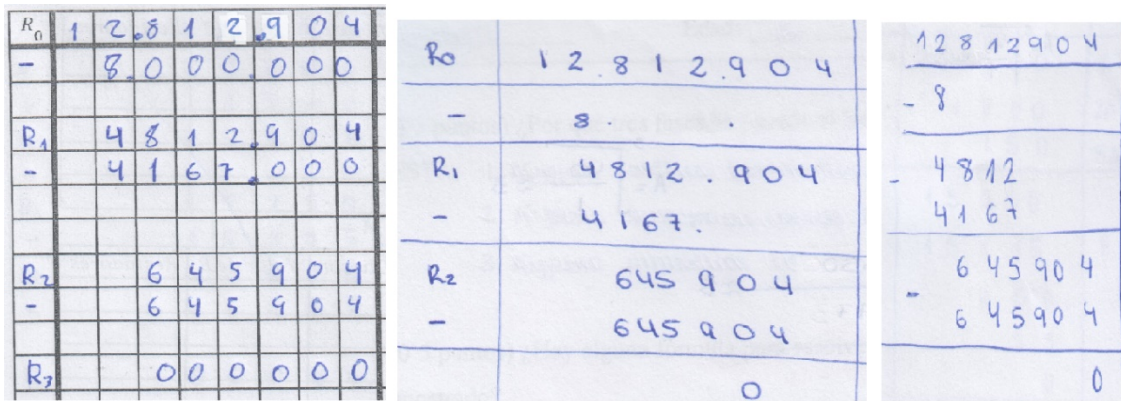 R0 1 2.8 1 2.9 0 4
- 8.0 0 0.0 0 0
R1 4 8 1 2.9 0 4
- 4 1 6 7.0 0 0
R2 6 4 5 9 0 4
- 6 4 5 9 0 4
R3 0 0 0 0 0 0
R0 1 2 . 8 1 2 . 9 0 4
- 8 . .
R1 4 8 1 2 . 9 0 4
- 4 1 6 7 .
R2 6 4 5 9 0 4
- 6 4 5 9 0 4
0
1 2 8 1 2 9 0 4
- 8
- 4 8 1 2
4 1 6 7
6 4 5 9 0 4
-
6 4 5 9 0 4
0